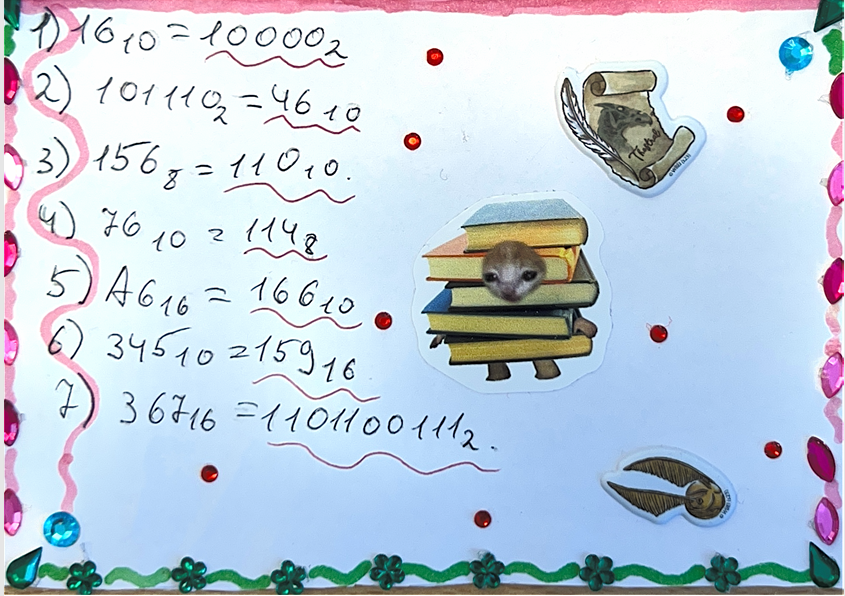 1) 16₁₀ = 10000₂
2) 101110₂ = 46₁₀
3) 156₈ = 110₁₀.
4) 76₁₀ = 114₈
5) A6₁₆ = 166₁₀
6) 345₁₀ = 159₁₆
7) 367₁₆ = 1101100111₂.